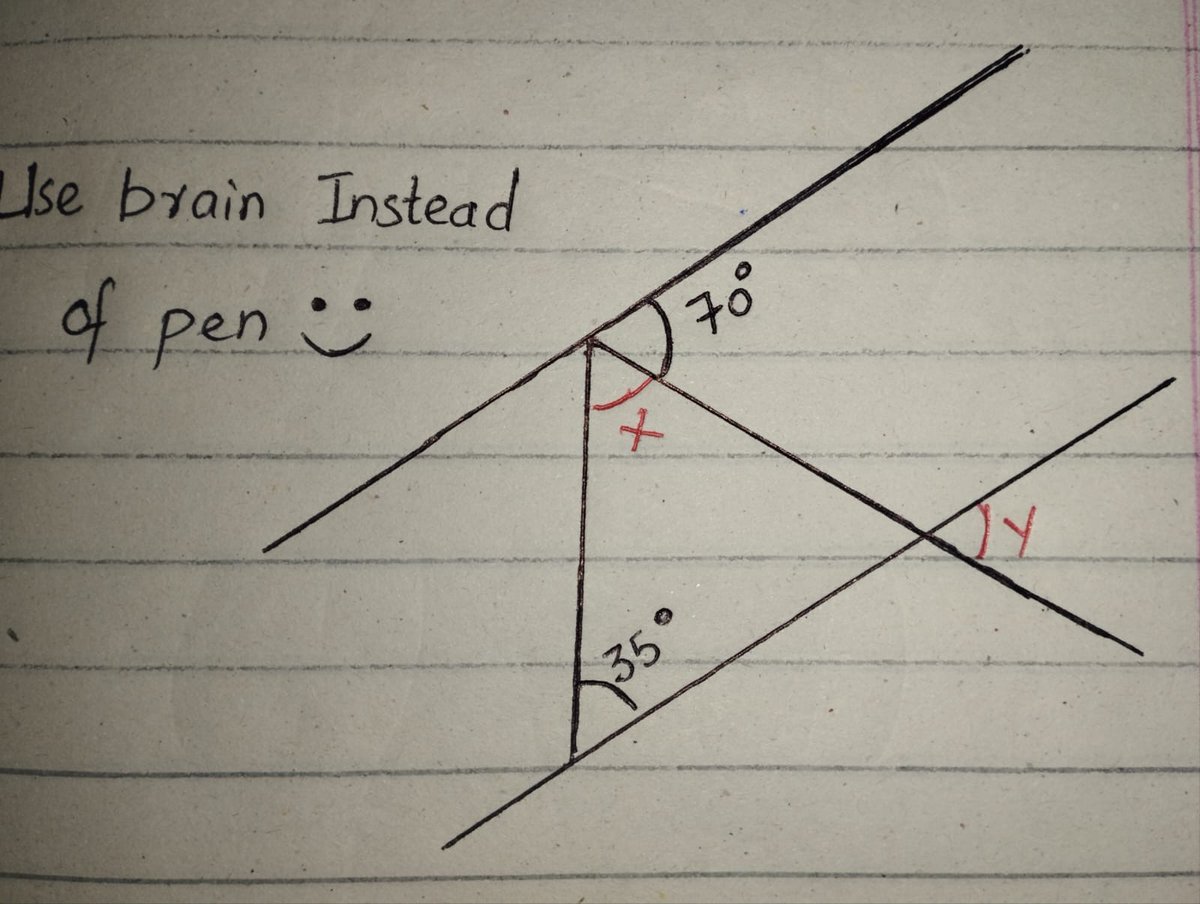 Use brain Instead
of pen
70°
x
y
35°